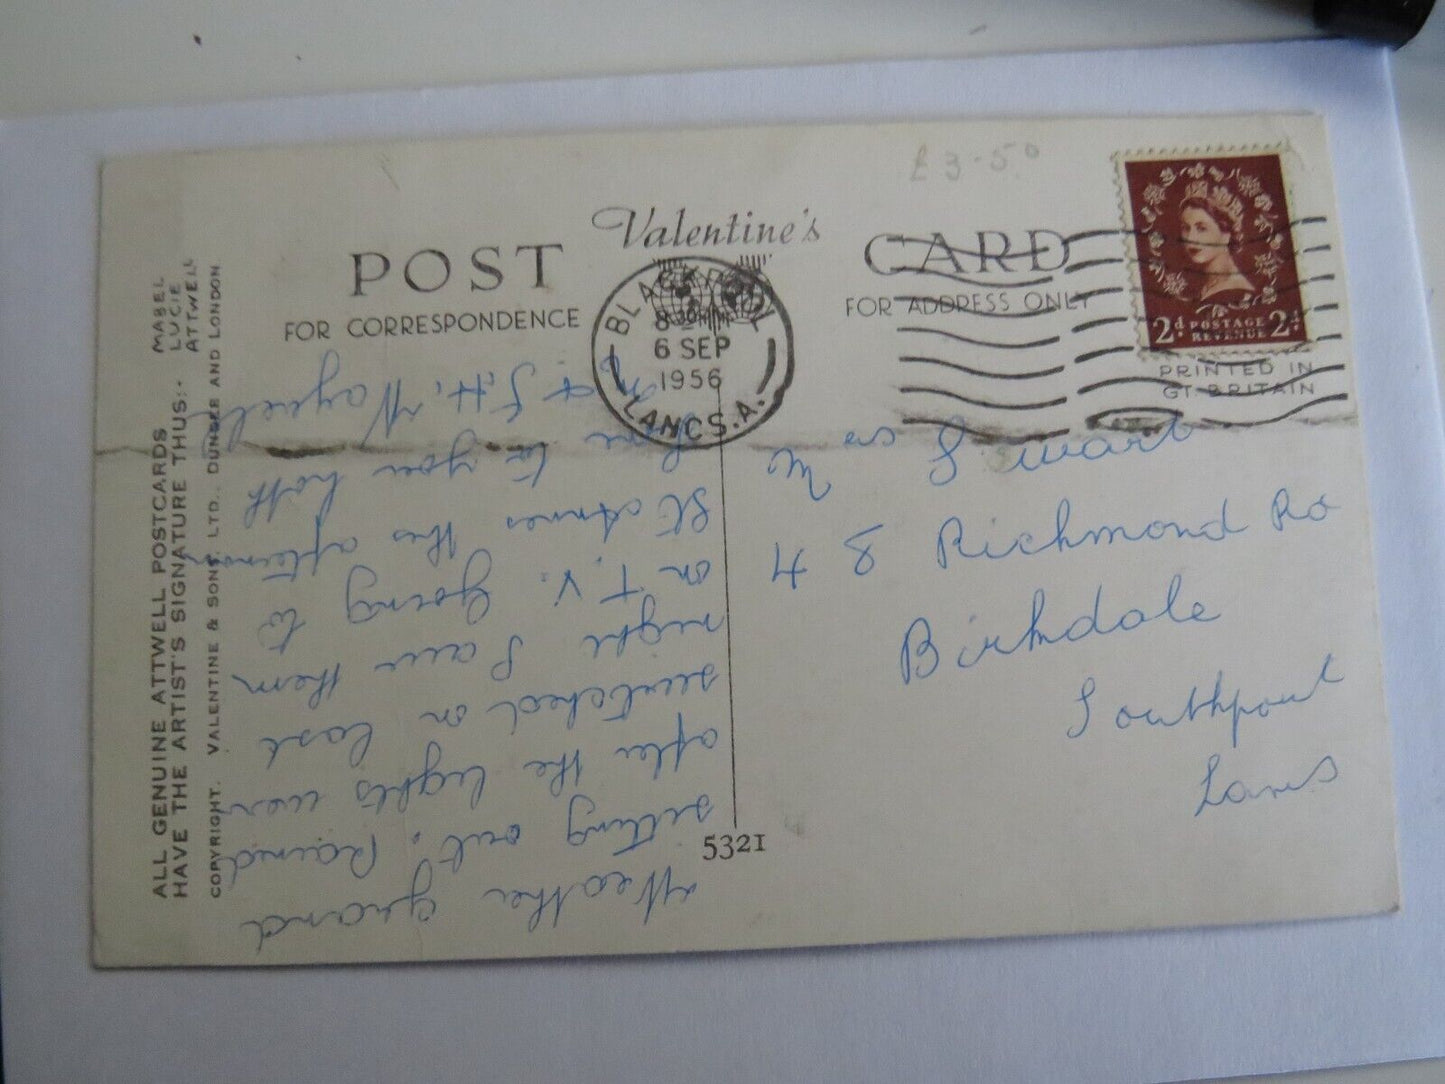 £3-50
Valentine's
POST CARD
FOR CORRESPONDENCE
FOR ADDRESS ONLY
BLACKPOOL
8 30 PM
6 SEP
1956
LANCS.A.
2d POSTAGE REVENUE 2d
PRINTED IN
GT. BRITAIN
ALL GENUINE ATTWELL POSTCARDS
HAVE THE ARTIST'S SIGNATURE THUS:-
MABEL
LUCIE
ATTWELL
COPYRIGHT. VALENTINE & SONS, LTD., DUNDEE AND LONDON
5321
Weather grand
setting out. Raind
after the lights wer
switched on last
night Saw them
on T.V. Going to
St Annes this afternoon
to you both
& J.H.
Mrs S
48 Richmond Rd
Birkdale
Southport
Lancs